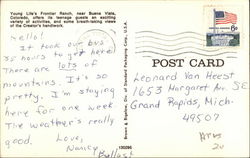 Young Life's Frontier Ranch, near Buena Vista,
Colorado, offers its teenage guests an exciting
variety of activities, and some breath-taking views
of the Creator's handiwork.
Hello!
It took our bus
32 hours to get here!
There are lots of
mountains. It's so
pretty. I'm staying
here for one week.
The weather's really
good.
Love,
Nancy
100295
POST CARD
6c
Leonard Van Heest
1653 Margaret Ave. SE
Grand Rapids, Mich.
49507